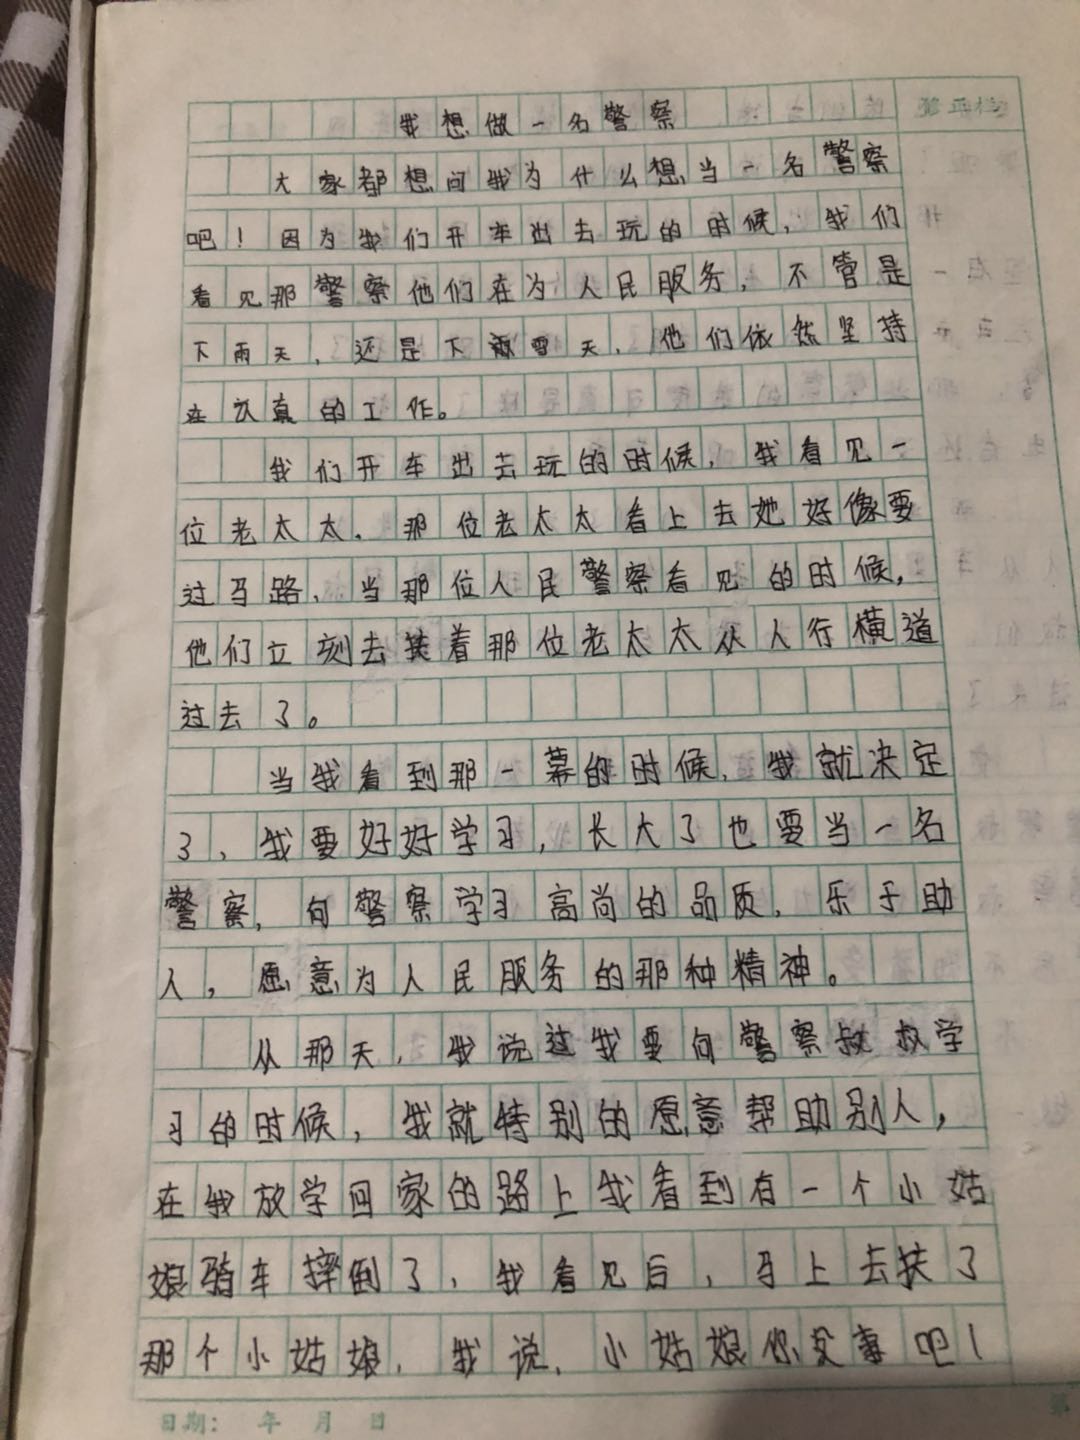 我想做一名警察
大家都想问我为什么想当一名警察
吧！因为我们开车出去玩的时候，我们
看见那警察他们在为人民服务，不管是
下雨天，还是下雪天，他们依然坚持
在认真的工作。
我们开车出去玩的时候，我看见一
位老太太，那位老太太看上去她好像要
过马路，当那位人民警察看见的时候，
他们立刻去扶着那位老太太从人行横道
过去了。
当我看到那一幕的时候，我就决定
了，我要好好学习，长大了也要当一名
警察，向警察学习高尚的品质，乐于助
人，愿意为人民服务的那种精神。
从那天，我说过我要向警察叔叔学
习的时候，我就特别的愿意帮助别人，
在我放学回家的路上我看到有一个小姑
娘骑车摔倒了，我看见后，马上去扶了
那个小姑娘，我说，小姑娘你没事吧！
日期： 年 月 日